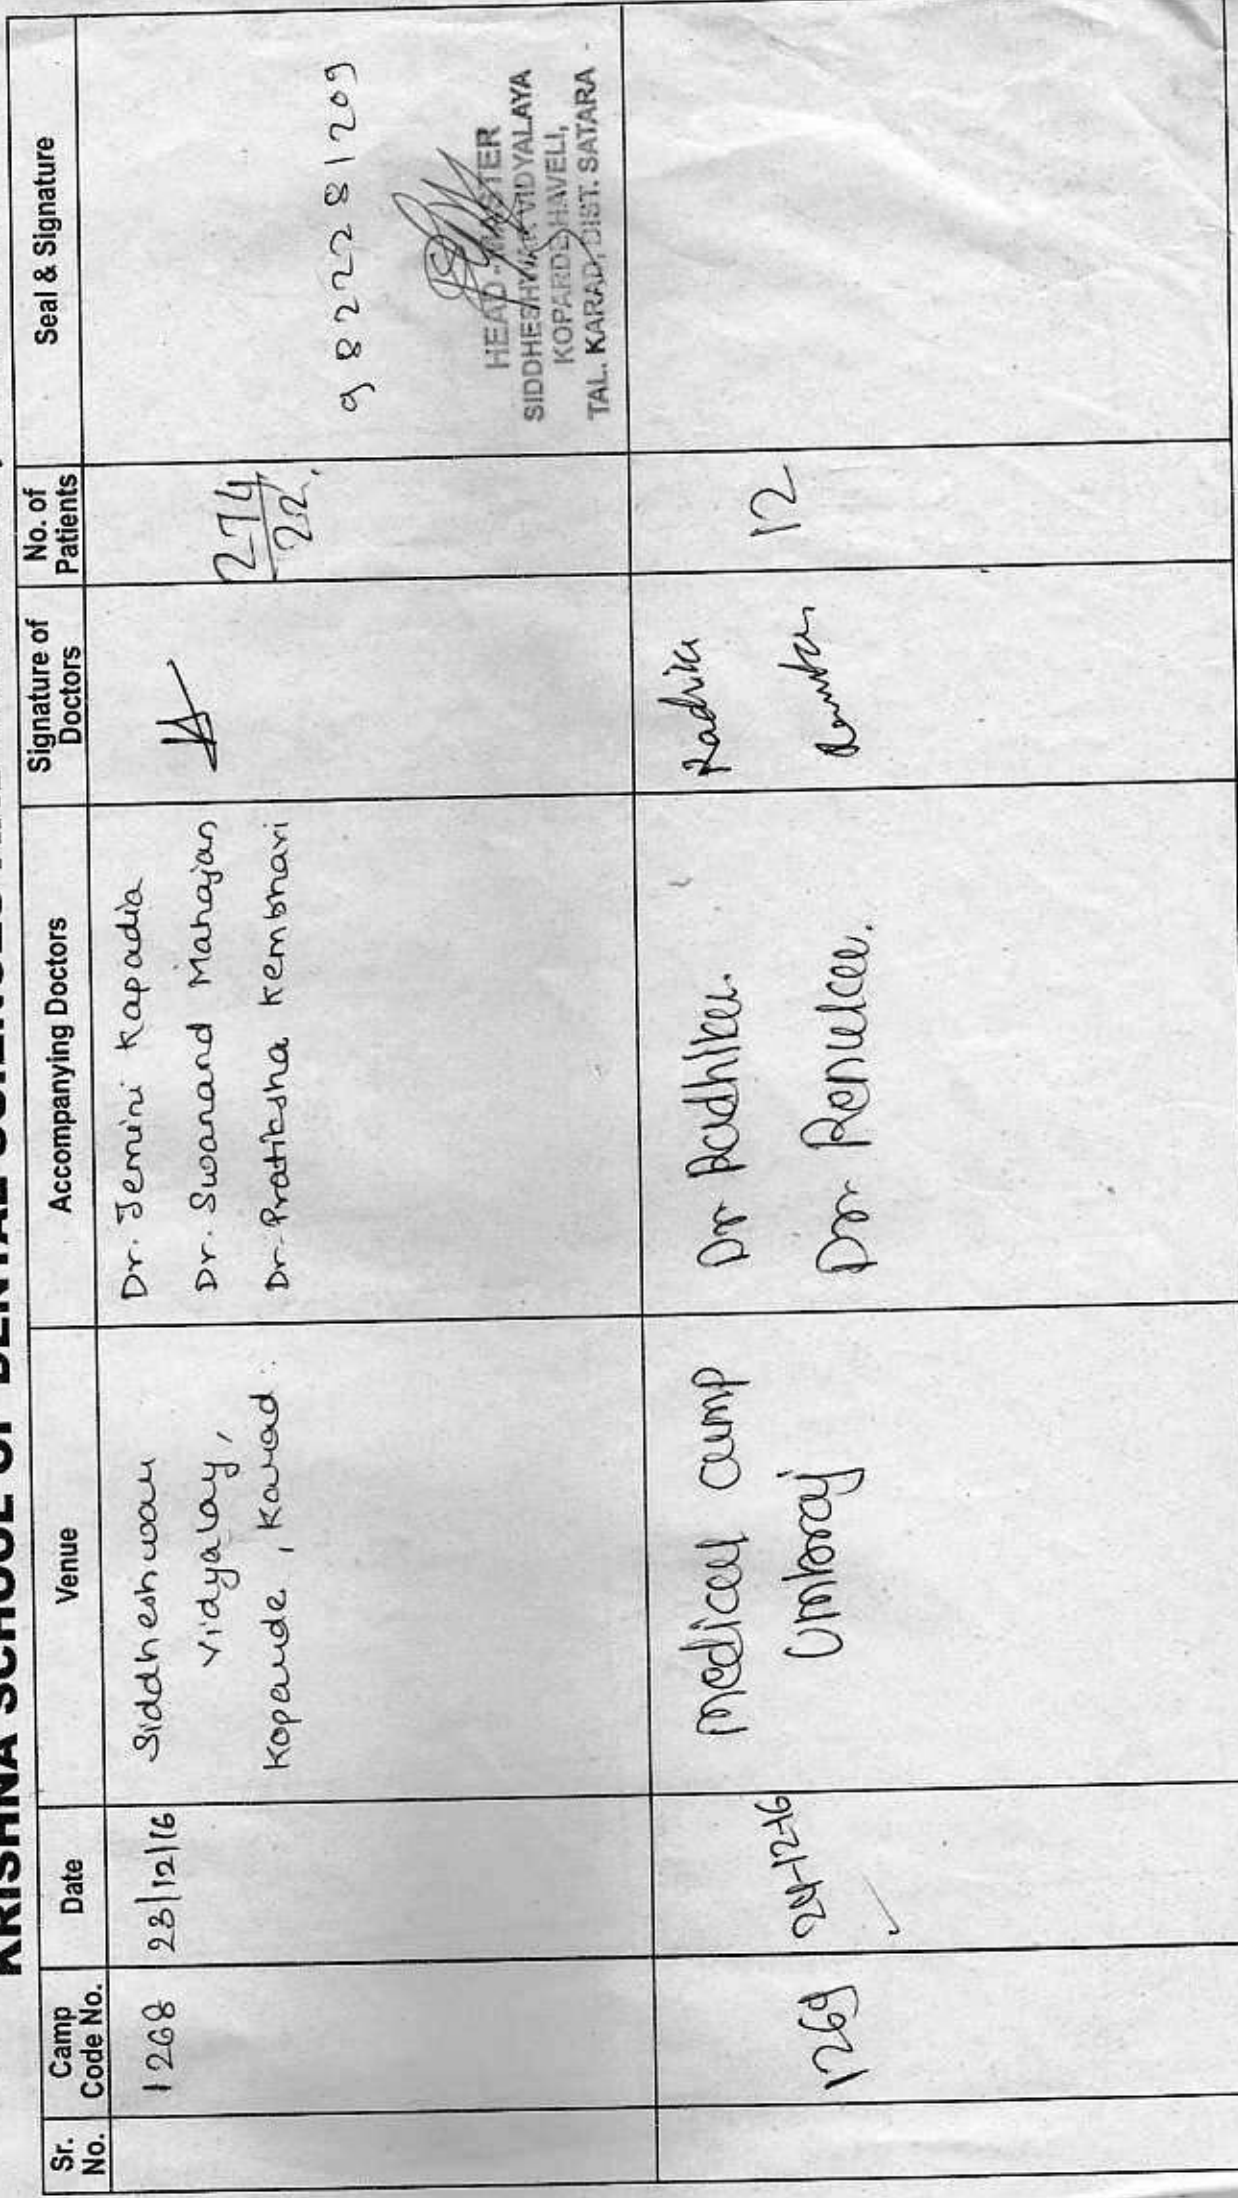 KRISHNA SCHOOL OF DENTAL SCIENCES
Sr. No.
Camp Code No.
Date
Venue
Accompanying Doctors
Signature of Doctors
No. of Patients
Seal & Signature
1268
23/12/16
Siddheshwar
Vidyalay,
Koparde, Karad.
Dr. Jemini Kapadia
Dr. Swanand Mahajan
Dr. Pratiksha Kembhavi
274
22
9822281209
HEAD-MASTER
SIDDHESHWAR VIDYALAYA
KOPARDE HAVELI,
TAL. KARAD, DIST. SATARA.
1269
24-12-16
medical camp
Umbraj
Dr Radhika.
Dr Renuka.
Radhika
12